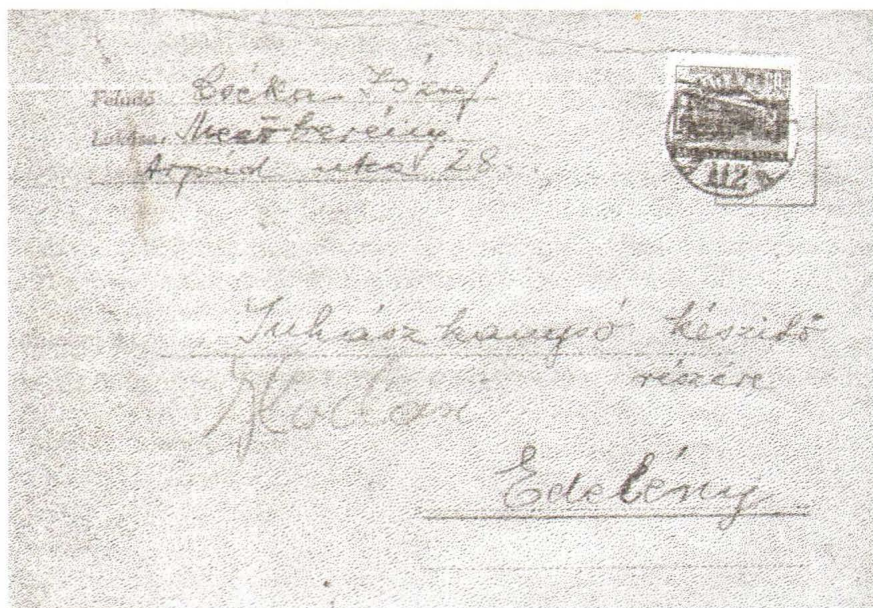 Feladó: Bećka József
Lakása: Mezőberény
Árpád utca 28.
112
Juhászkampsó készítő
részére
Edelény